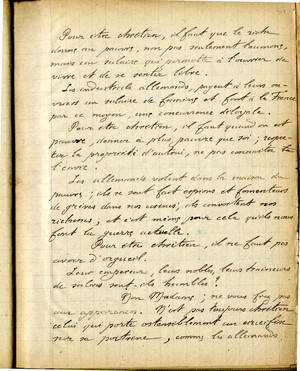 Pour être chrétien, il faut que le riche
donne au pauvre, non pas seulement l'aumône,
mais un salaire qui permette à l'ouvrier de
vivre et de se sentir libre.
Les industriels allemands, payent à leurs ou-
vriers un salaire de famine et font à la France
par ce moyen, une concurrence déloyale.
Pour être chrétien, il faut quand on est
pauvre, donner à plus pauvre que soi, respec-
ter la propriété d'autrui, ne pas connaître
l'envie.
Les allemands volent dans la maison du
pauvre; ils se sont fait espions et fomenteurs
de grèves dans nos usines; ils convoitent nos
richesses; et c'est même pour cela qu'ils nous
font la guerre actuelle.
Pour être chrétien, il ne faut pas
avoir d'orgueil.
Leur empereur, leurs nobles, leurs traineurs
de sabres sont-ils humbles?
Non Madame; ne vous fiez pas
aux apparences. N'est pas toujours chrétien
celui qui porte ostensiblement un crucifix
sur sa poitrine, comme les allemands